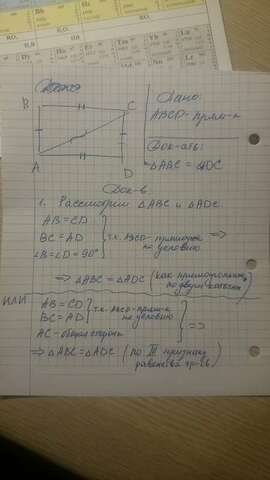 B
C
A
D
Дано:
ABCD - прям-к
Док-ать:
ΔABC = ΔADC
Док-в.
1. Рассмотрим ΔABC и ΔADC.
AB = CD
BC = AD
∠B = ∠D = 90°
т.к. ABCD - прямоуг.
по условию
⇒
⇒ ΔABC = ΔADC (как прямоугольные,
по двум катетам)
ИЛИ
AB = CD
BC = AD
т.к. ABCD - прям-к
по условию
AC - общая сторона
⇒
⇒ ΔABC = ΔADC (по III признаку
равенства тр-ов)